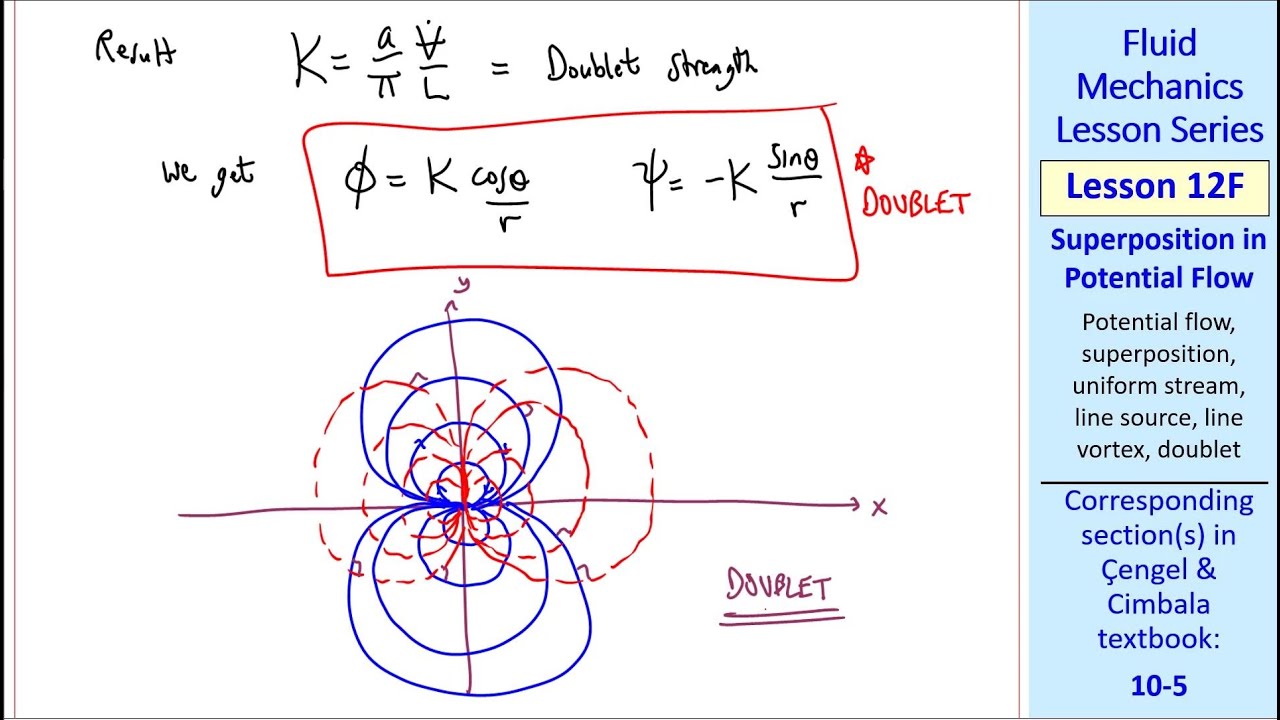 Result K = a/π V̇/L = Doublet strength
we get ϕ = K cosθ/r ψ = -K sinθ/r ☆ DOUBLET
y
x
DOUBLET
Fluid
Mechanics
Lesson Series
Lesson 12F
Superposition in
Potential Flow
Potential flow,
superposition,
uniform stream,
line source, line
vortex, doublet
Corresponding
section(s) in
Çengel &
Cimbala
textbook:
10-5